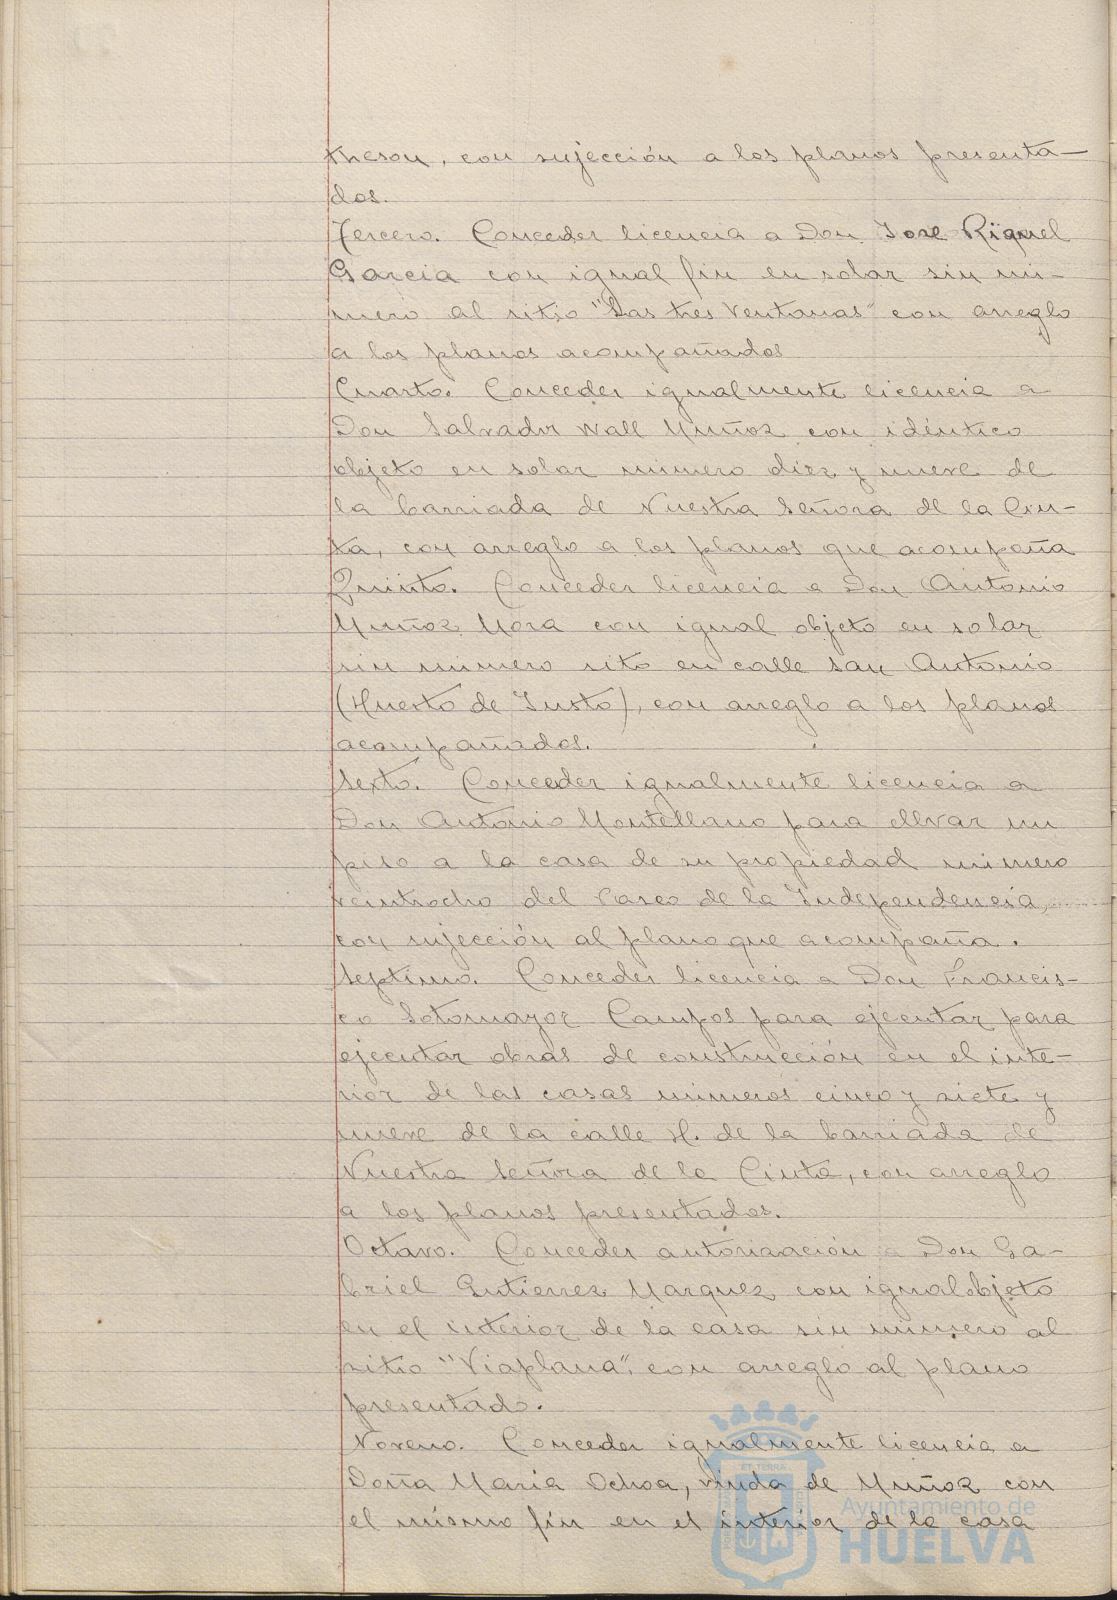 theson, con sujección a los planos presenta-
dos.
Tercero. Conceder licencia a Don Jose Riquel
Garcia con igual fin en solar sin nú-
mero al sitio "Las tres Ventanas" con arreglo
a los planos acompañados
Cuarto. Conceder igualmente licencia a
Don Salvador Wall Muñoz con idéntico
objeto en solar número diez y nueve de
la barriada de Nuestra Señora de la Cin-
ta, con arreglo a los planos que acompaña
Quinto. Conceder licencia a Don Antonio
Muñoz Mora con igual objeto en solar
sin número sito en calle San Antonio
(Huerto de Justo), con arreglo a los planos
acompañados.
Sexto. Conceder igualmente licencia a
Don Antonio Montellano para ellvar un
piso a la casa de su propiedad número
veintiocho del Paseo de la Independencia,
con sujección al plano que acompaña.
Septimo. Conceder licencia a Don Francis-
co Sotomayor Campos para ejecutar para
ejecutar obras de construcción en el inte-
rior de las casas números cinco y siete y
nueve de la calle H. de la barriada de
Nuestra Señora de la Cinta, con arreglo
a los planos presentados.
Octavo. Conceder autorización a Don Ga-
briel Gutierrez Marquez con igual objeto
en el interior de la casa sin número al
sitio "Viaplana", con arreglo al plano
presentado.
Noveno. Conceder igualmente licencia a
Doña Maria Ochoa, viuda de Muñoz con
el mismo fin en el interior de la casa
Ayuntamiento de
HUELVA